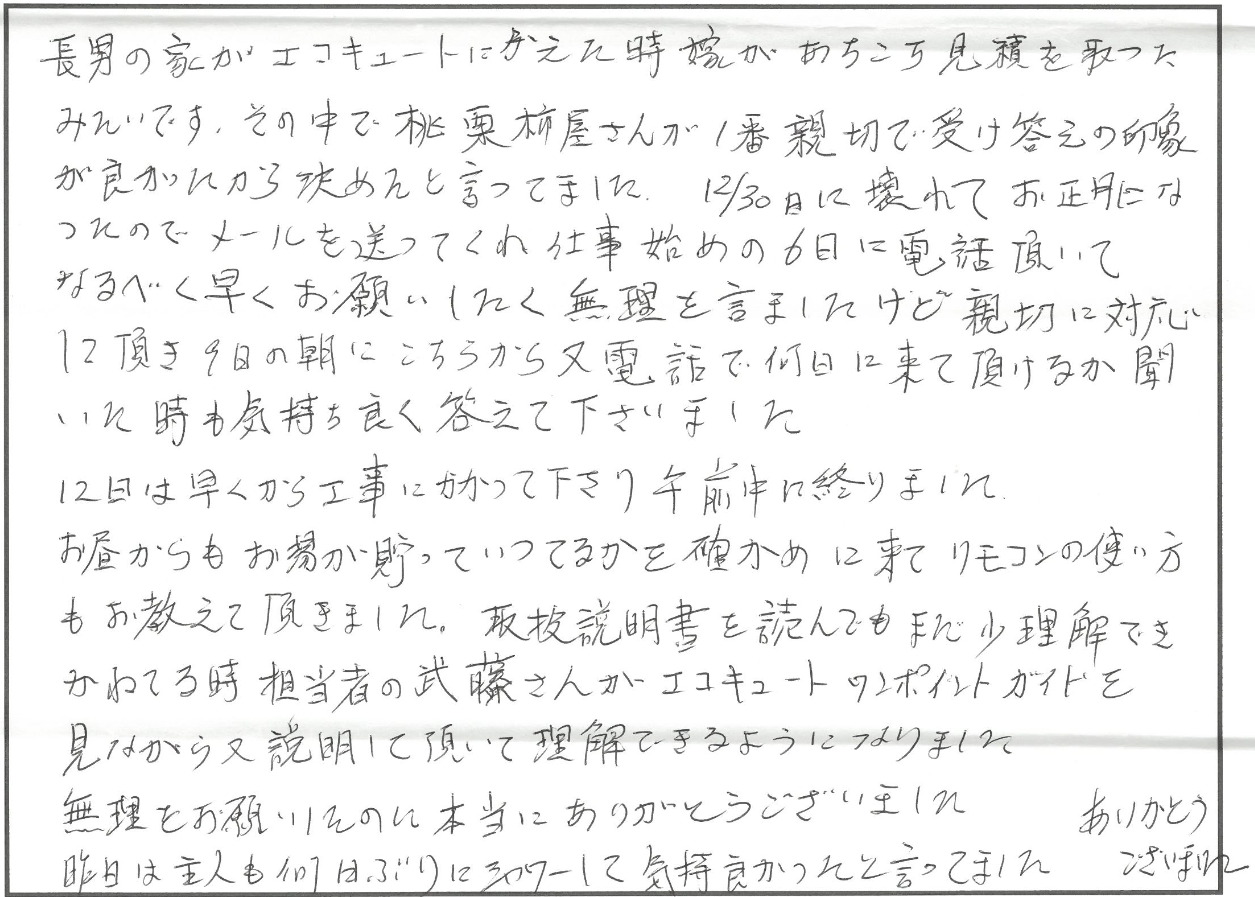 長男の家がエコキュートにかえた時嫁があちこち見積を取った
みたいです。その中で桃栗柿屋さんが1番親切で受け答えの印象
が良かったから決めたと言ってました。12/30日に壊れてお正月にな
ったのでメールを送ってくれ仕事始めの6日に電話頂いて
なるべく早くお願いしたく無理を言ましたけど親切に対応
して頂き9日の朝にこちらから又電話で何日に来て頂けるか聞
いた時も気持ち良く答えて下さいました
12日は早くから工事にかかって下さり午前中に終りました。
お昼からもお湯が貯っていってるかを確かめに来てリモコンの使い方
もお教えて頂きました。取扱説明書を読んでもまだ少理解でき
かねてる時担当者の武藤さんがエコキュートワンポイントガイドを
見ながら又説明して頂いて理解できるようになりました
無理をお願いしたのに本当にありがとうございました
昨日は主人も何日ぶりにシャワーして気持良かったと言ってました
ありがとう
ございました